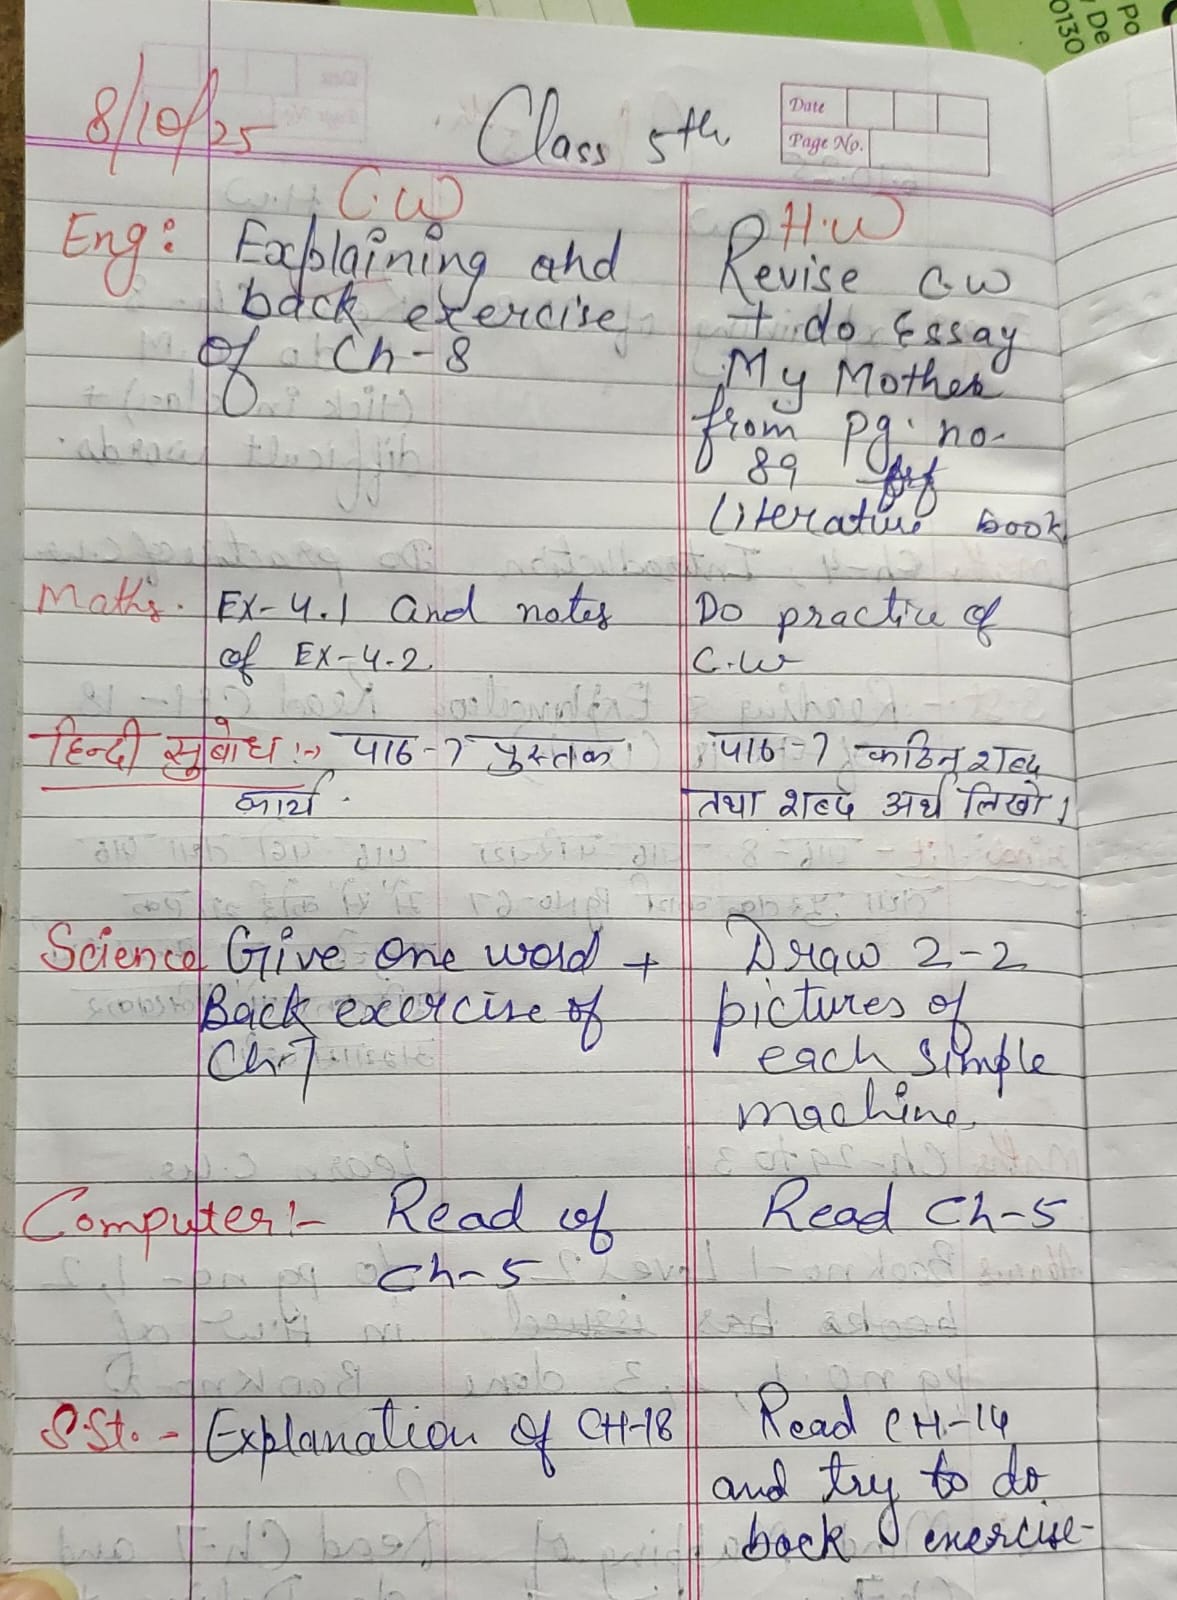 Po
y De
0130
8/10/25
Class 5th
Date
Page No.
C.W
H.W
Eng: Explaining and
back exercise
of Ch-8
Revise C.W
+ do Essay
My Mother
from pg. no.
89 of
Literature book
Maths. Ex-4.1 and notes
of Ex-4.2
Do practice of
C.W
हिन्दी सुबोध :-> पाठ-7 पुस्तक
कार्य.
पाठ-7 कठिन शब्द
तथा शब्द अर्थ लिखो।
Science Give one word +
Back exercise of
Ch-7
Draw 2-2
pictures of
each simple
machine.
Computer:- Read of
Ch-5
Read Ch-5
S.St. - Explanation of CH-18
Read CH-14
and try to do
back exercise-